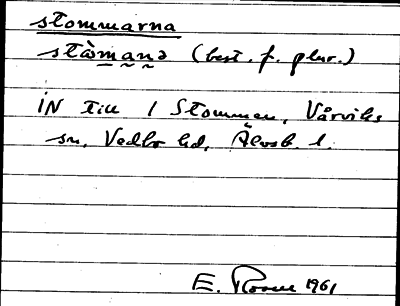 stommarna
ståmanə (best. f. plur.)
IN till 1 Stommen, Vårviks
sn, Vedbo hd, Älvsb. l.
E. 1961